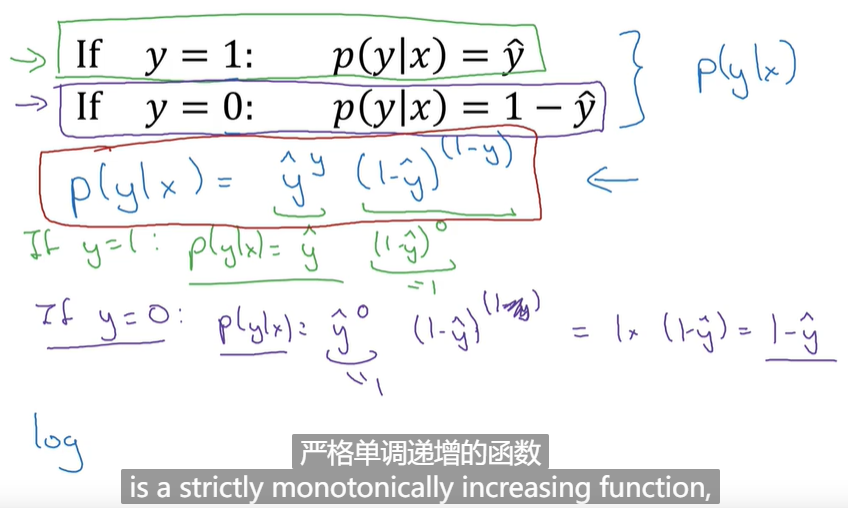 If y = 1: p(y|x) = ŷ
If y = 0: p(y|x) = 1 − ŷ
p(y|x)
p(y|x) = ŷ^y (1-ŷ)^(1-y)
If y=1: p(y|x) = ŷ (1-ŷ)^0
=1
If y=0: p(y|x) = ŷ^0 (1-ŷ)^(1-y) = 1 × (1-ŷ) = 1-ŷ
=1
log
严格单调递增的函数
is a strictly monotonically increasing function,